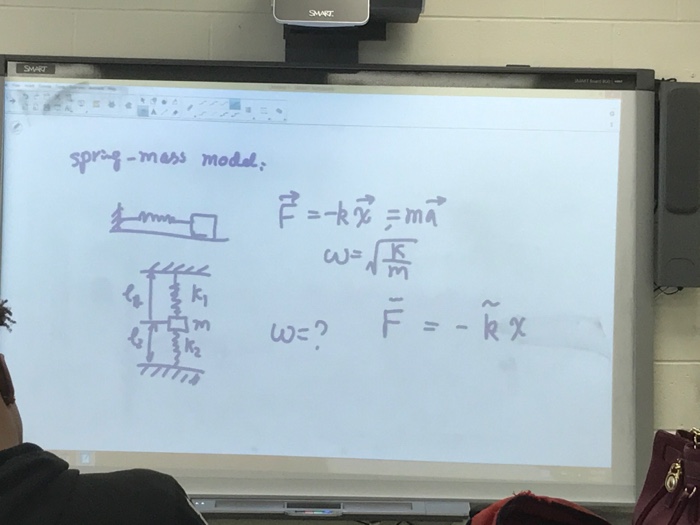 SMART
SMART
spring-mass model:
F⃗ = -kx⃗ = ma⃗
ω = √(k/m)
k₁
m
k₂
ω = ?
F̄ = - k̃ x